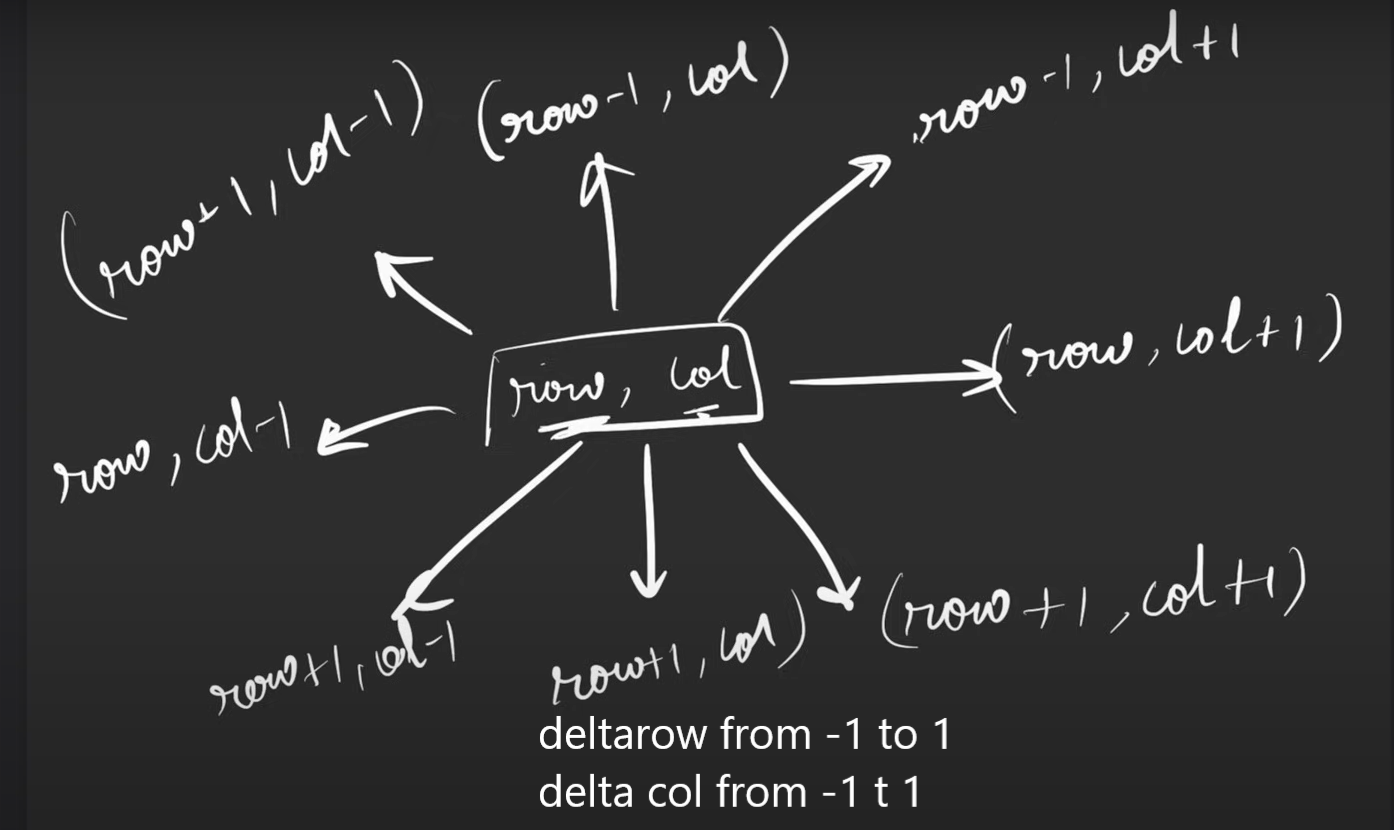 (row+1, col-1)
(row-1, col)
row-1, col+1
row, col-1
row, col
(row, col+1)
row+1, col-1
row+1, col)
(row+1, col+1)
deltarow from -1 to 1
delta col from -1 t 1